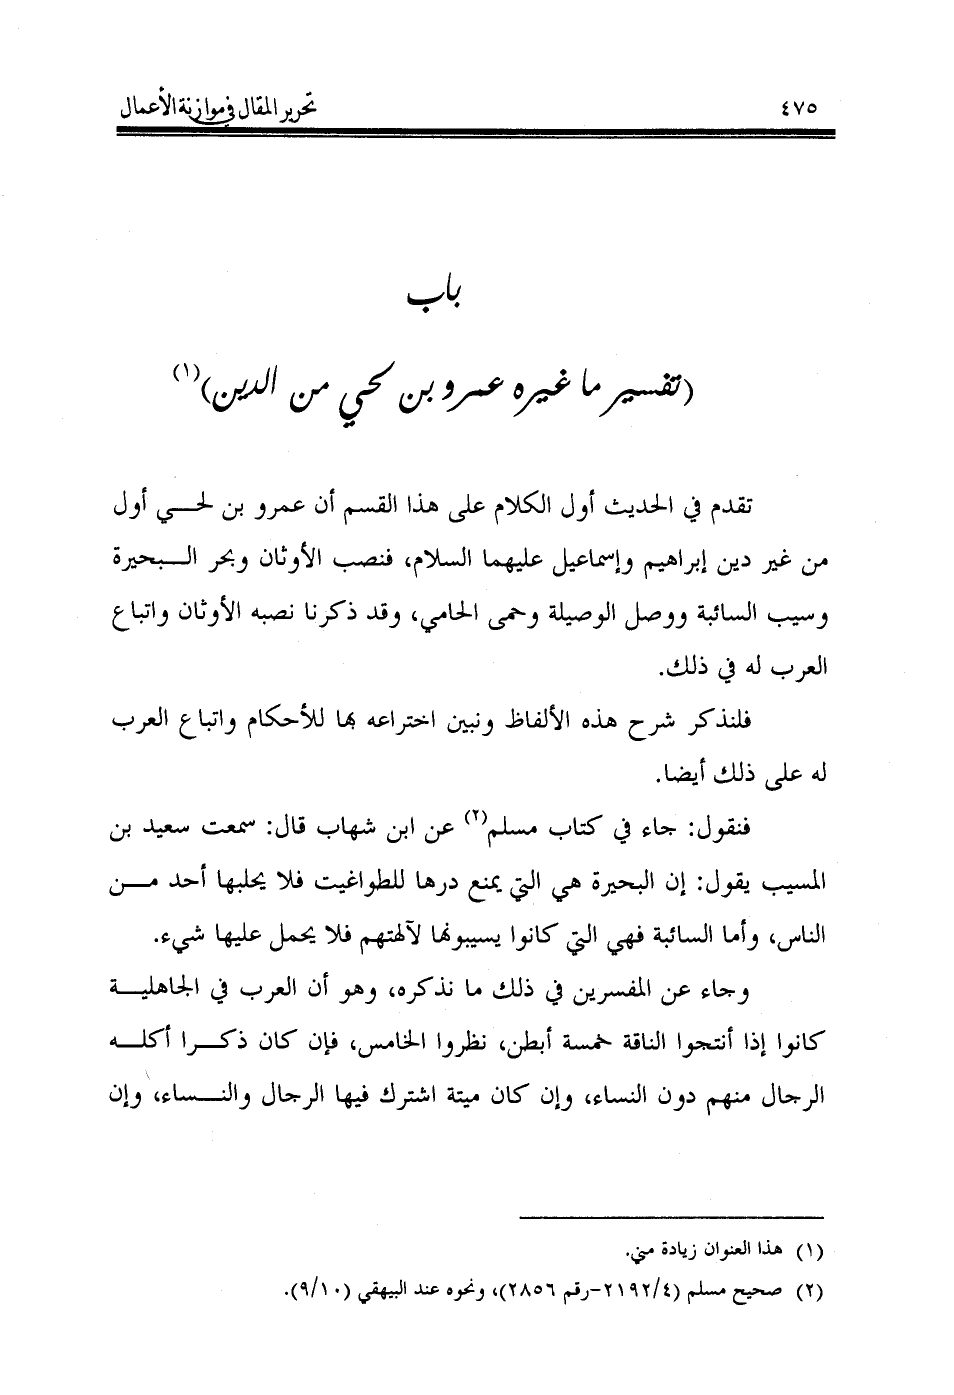 ٤٧٥ تحرير المقال في موازنة الأعمال
باب
(تفسير ما غيره عمرو بن لحي من الدين)(١)
تقدم في الحديث أول الكلام على هذا القسم أن عمرو بن لحي أول
من غير دين إبراهيم وإسماعيل عليهما السلام، فنصب الأوثان وبحر البحيرة
وسيب السائبة ووصل الوصيلة وحمى الحامي، وقد ذكرنا نصبه الأوثان واتباع
العرب له في ذلك.
فلنذكر شرح هذه الألفاظ ونبين اختراعه بها للأحكام واتباع العرب
له على ذلك أيضا.
فنقول: جاء في كتاب مسلم(٢) عن ابن شهاب قال: سمعت سعيد بن
المسيب يقول: إن البحيرة هي التي يمنع درها للطواغيت فلا يحلبها أحد من
الناس، وأما السائبة فهي التي كانوا يسيبونها لآلهتهم فلا يحمل عليها شيء.
وجاء عن المفسرين في ذلك ما نذكره، وهو أن العرب في الجاهلية
كانوا إذا أنتجوا الناقة خمسة أبطن، نظروا الخامس، فإن كان ذكرا أكله
الرجال منهم دون النساء، وإن كان ميتة اشترك فيها الرجال والنساء، وإن
(١) هذا العنوان زيادة مني.
(٢) صحيح مسلم (٢١٩٢/٤-رقم ٢٨٥٦)، ونحوه عند البيهقي (٩/١٠).